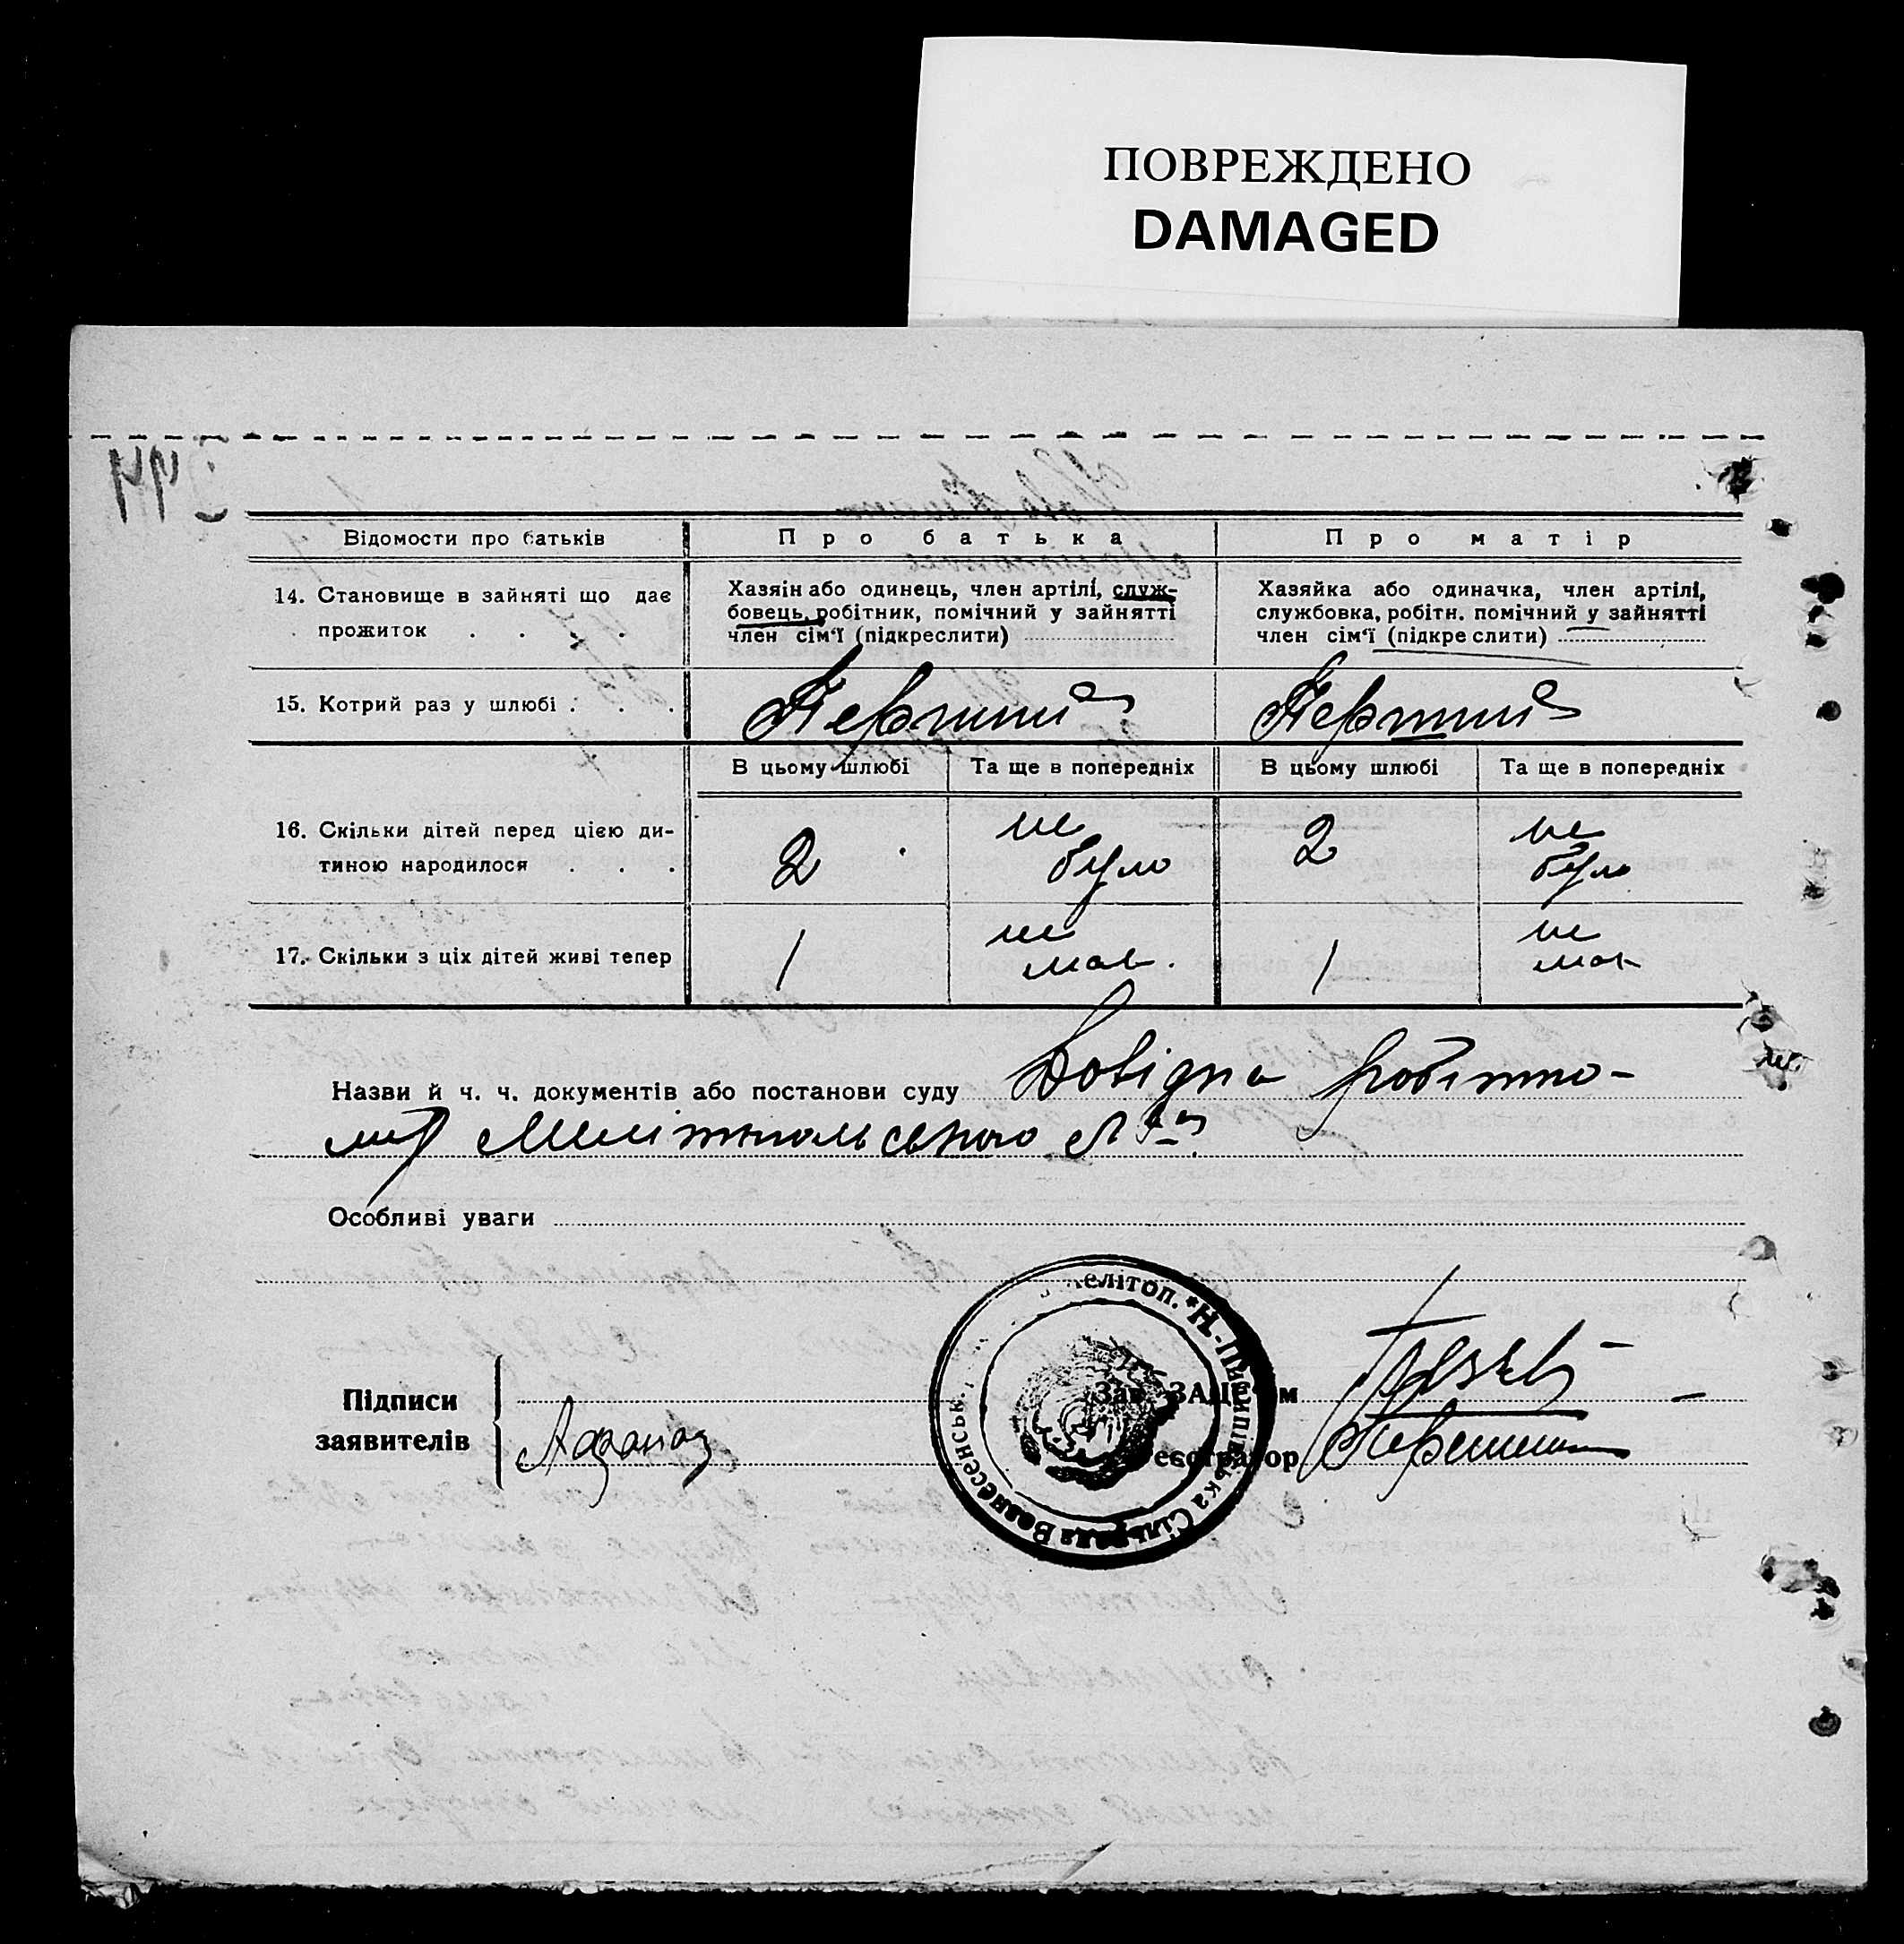 ПОВРЕЖДЕНО
DAMAGED
Відомости про батьків
Про батька
Про матір
14. Становище в зайняті що дає
прожиток . . . .
Хазяїн або одинець, член артілі, служ-
бовець, робітник, помічний у зайнятті
член сім'ї (підкреслити)
Хазяйка або одиначка, член артілі,
службовка, робітн. помічний у зайнятті
член сім'ї (підкреслити)
15. Котрий раз у шлюбі . . .
Перший
Перший
В цьому шлюбі
Та ще в попередніх
В цьому шлюбі
Та ще в попередніх
16. Скільки дітей перед цією ди-
тиною народилося . . .
2
не
було
2
не
було
17. Скільки з ціх дітей живі тепер
1
не
мав.
1
не
мав
Назви й ч. ч. документів або постанови суду Довідка
Мелітопольського
Особливі уваги
Підписи
заявителів
Зав. ЗАЦСʼом
еєстратор
елітоп. * Н.-Пилипівська Сільрада Вознесенськ.